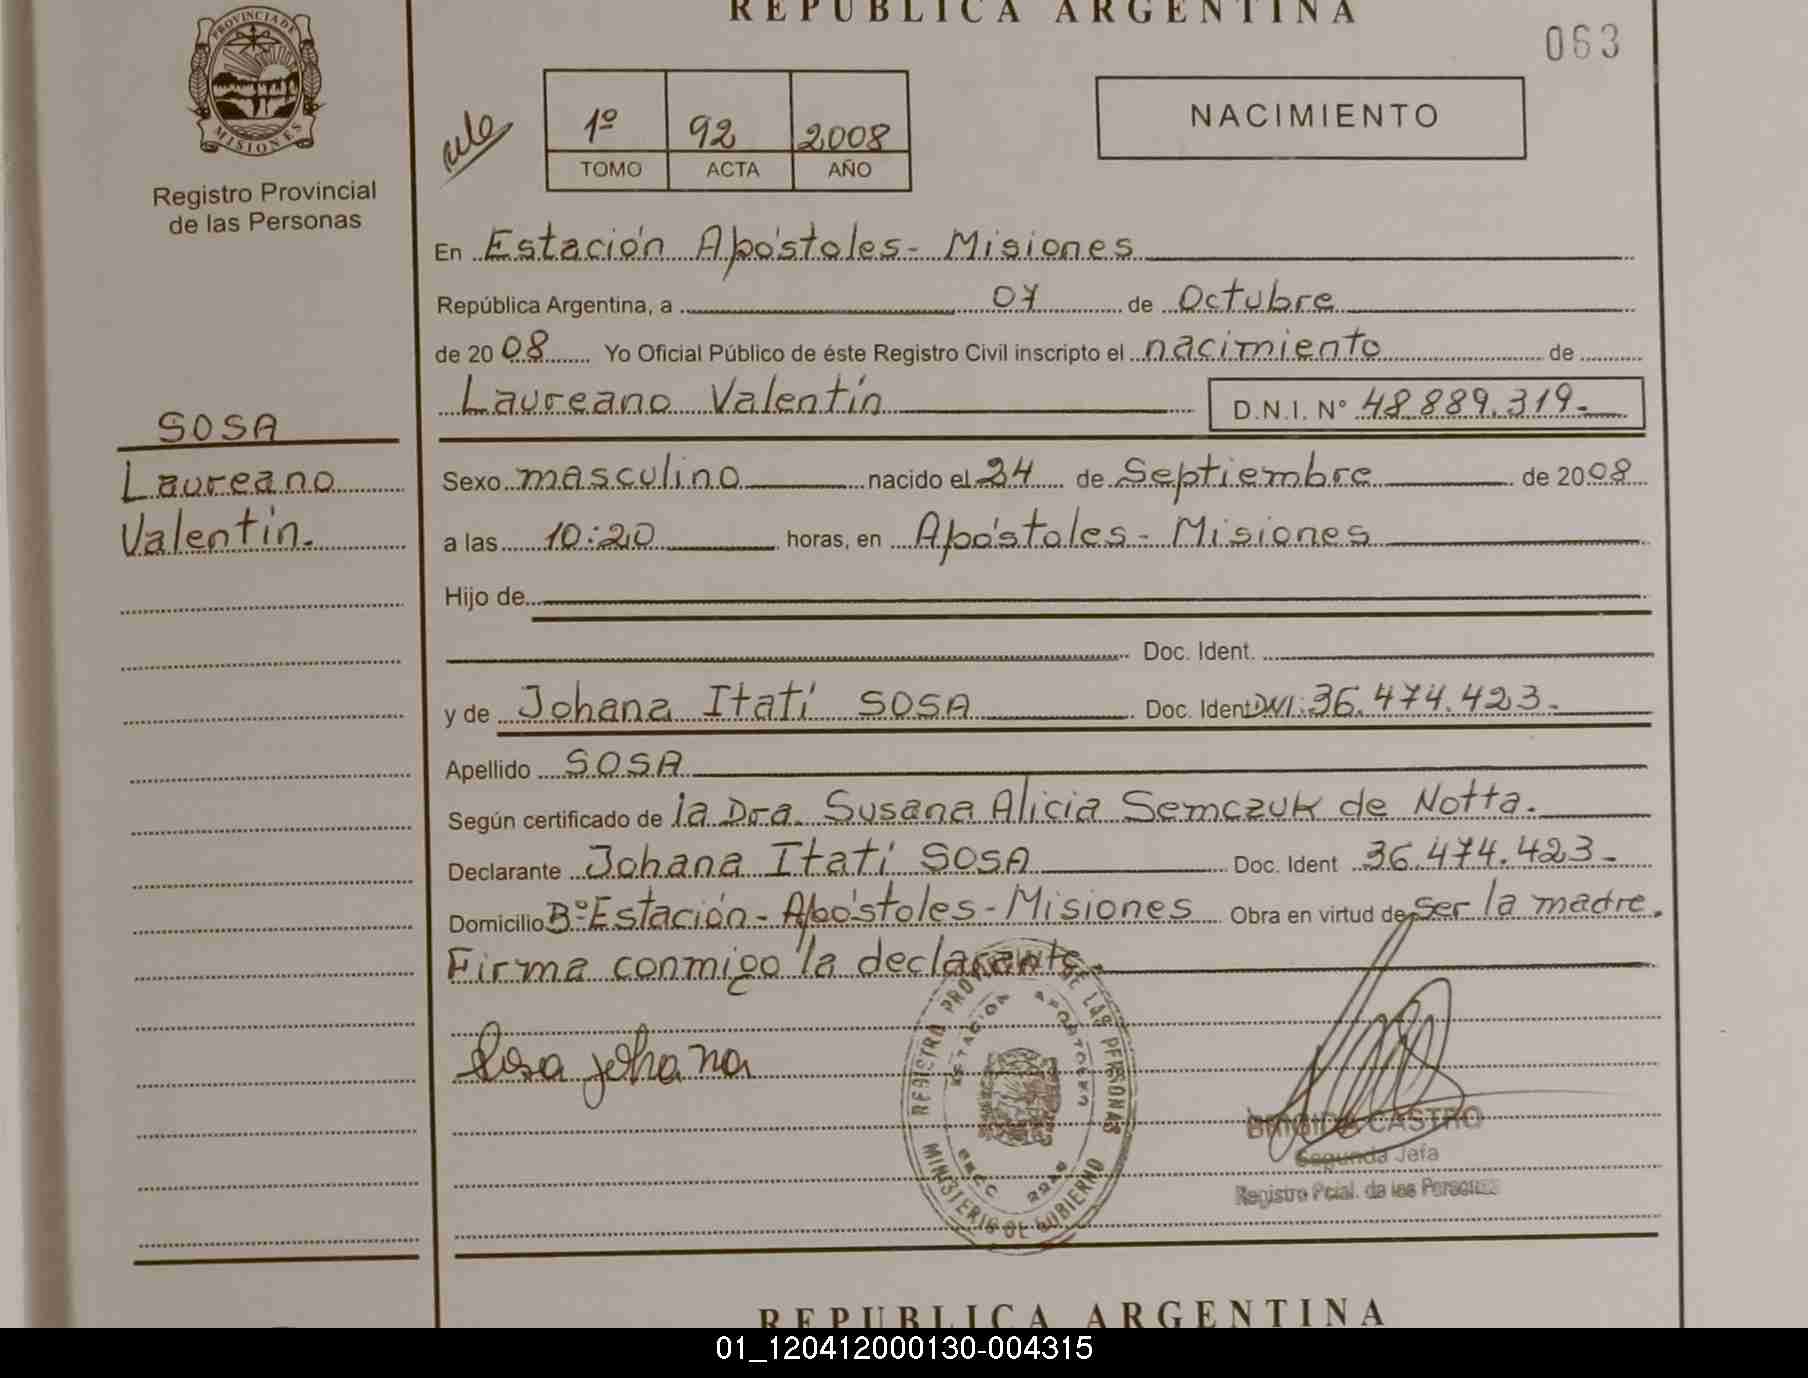 REPUBLICA ARGENTINA
063
PROVINCIA DE
MISIONES
Registro Provincial
de las Personas
1º 92 2008
TOMO ACTA AÑO
NACIMIENTO
En Estación Apóstoles - Misiones
República Argentina, a 07 de Octubre
de 20 08 Yo Oficial Público de éste Registro Civil inscripto el nacimiento de
Laureano Valentín D.N.I. Nº 48.889.319-
SOSA
Laureano
Valentín.
Sexo masculino nacido el 24 de Septiembre de 2008
a las 10:20 horas, en Apóstoles - Misiones
Hijo de
Doc. Ident.
y de Johana Itatí SOSA Doc. Ident DNI: 36.474.423-
Apellido SOSA
Según certificado de la Dra. Susana Alicia Semczuk de Notta.
Declarante Johana Itatí SOSA Doc. Ident 36.474.423-
Domicilio Bº Estación - Apóstoles - Misiones Obra en virtud de ser la madre.
Firma conmigo la declarante.
Sosa Johana
REGISTRO PROV DE LAS PERSONAS
ESTACION APOSTOLES
MINISTERIO DE GOBIERNO
BRIGIDA CASTRO
Segunda Jefa
Registro Pcial. de las Personas
REPUBLICA ARGENTINA
01_120412000130-004315